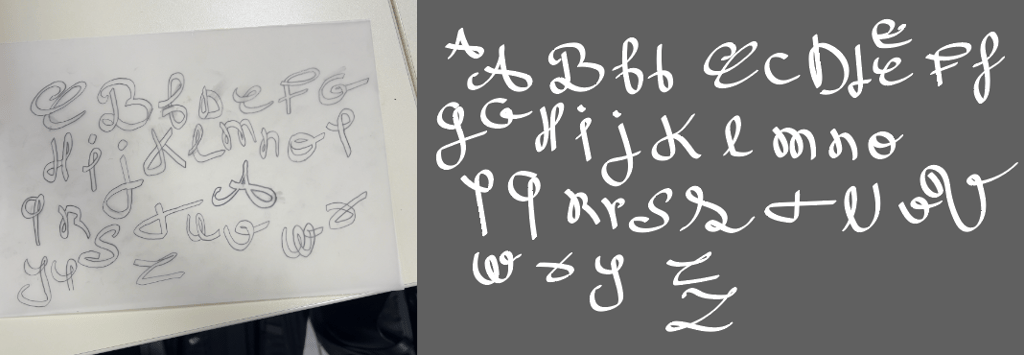 C B b D e F G
H i j K l m n o p
A
q R S t u v w r
y y z
A A B b b C C D d e e F f
g G H i j K l m n o
p q R r S s t U v V
w r y z
Z